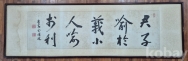 君子
喻於
義小
人喻
於利